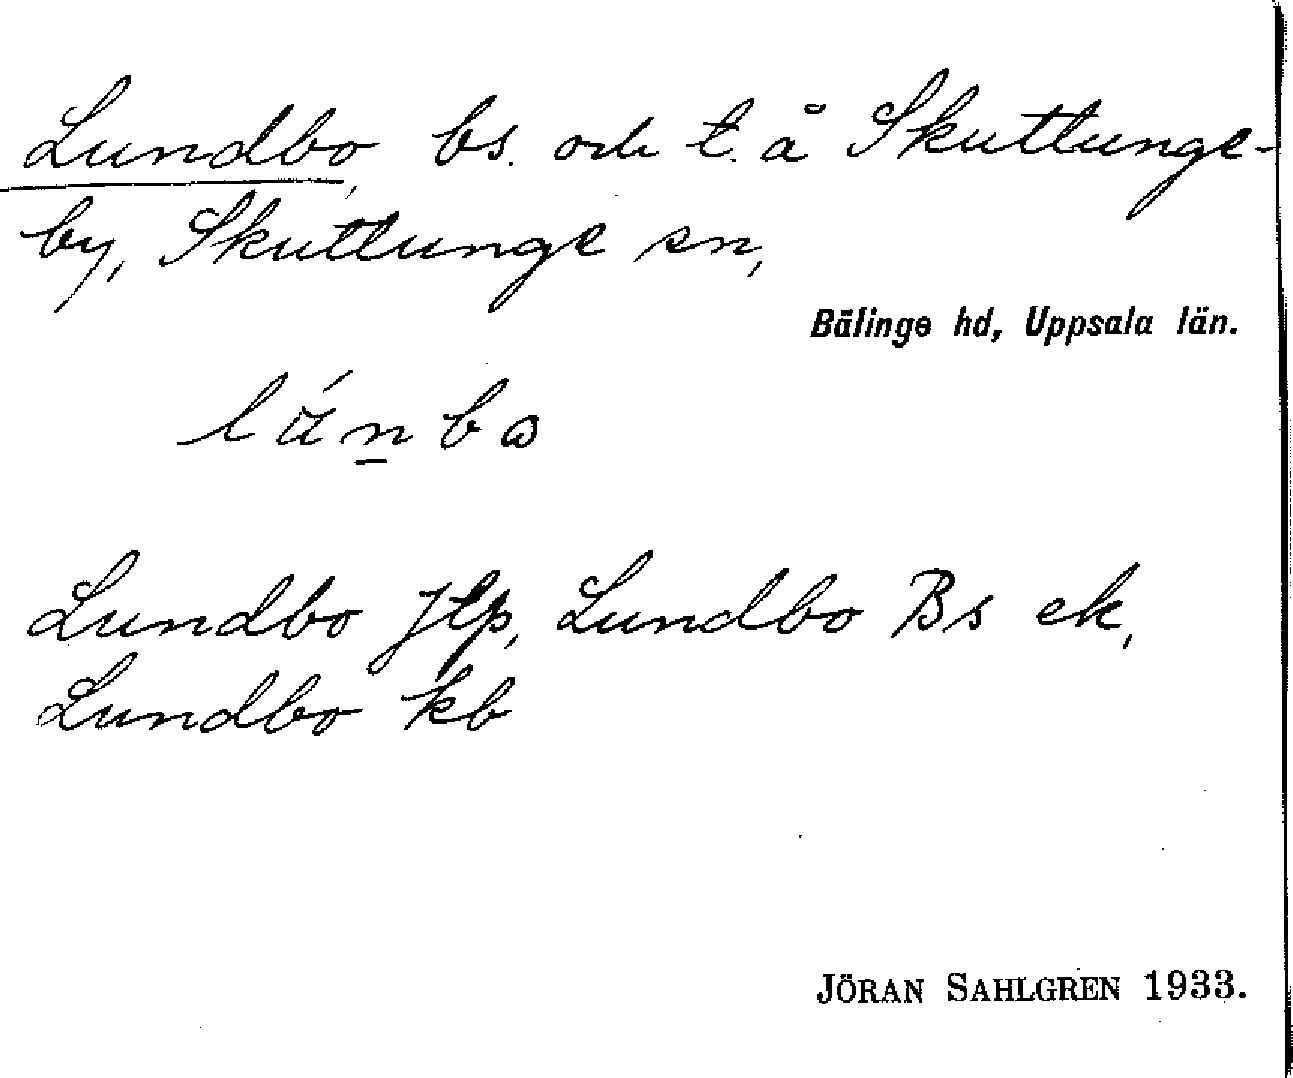 Lundbo, bs. och t. å Skuttunge-
by, Skuttunge sn,
Bälinge hd, Uppsala län.
Lundbo Jtp, Lundbo Bs ek,
Lundbo kb
JÖRAN SAHLGREN 1933.